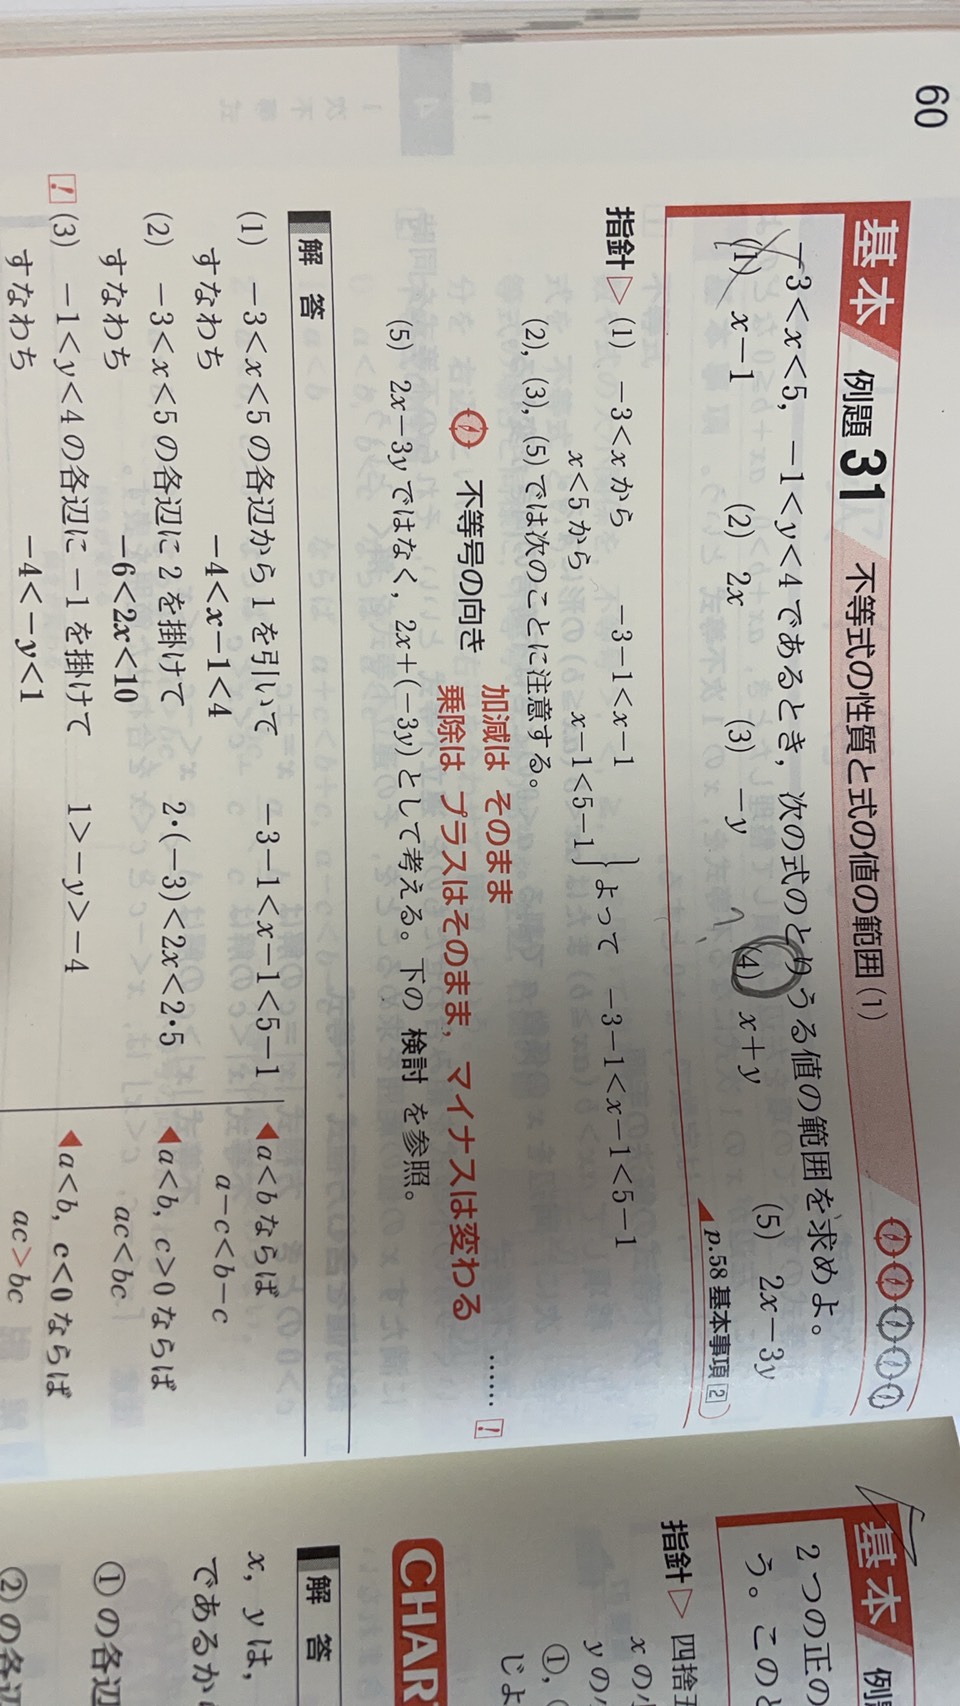 60
基本 例題 31 不等式の性質と式の値の範囲 (1)
−3<x<5, −1<y<4 であるとき，次の式のとりうる値の範囲を求めよ。
(1) x−1 (2) 2x (3) −y (4) x+y (5) 2x−3y
p.58 基本事項 2
指針 ▷ (1) −3<x から −3−1<x−1
x<5 から x−1<5−1 } よって −3−1<x−1<5−1
(2), (3), (5) では次のことに注意する。
不等号の向き 加減は そのまま
乗除は プラスはそのまま，マイナスは変わる …… !
(5) 2x−3y ではなく，2x+(−3y) として考える。下の 検討 を参照。
解 答
(1) −3<x<5 の各辺から 1 を引いて −3−1<x−1<5−1
すなわち −4<x−1<4
(2) −3<x<5 の各辺に 2 を掛けて 2・(−3)<2x<2・5
すなわち −6<2x<10
! (3) −1<y<4 の各辺に −1 を掛けて 1>−y>−4
すなわち −4<−y<1
◀a<b ならば
a−c<b−c
◀a<b, c>0 ならば
ac<bc
◀a<b, c<0 ならば
ac>bc
基本 例題
2つの正の
う。このと
指針 ▷ 四捨五
x の
y の
①,
じよ
CHAR
解 答
x, y は,
であるか
① の各辺
② の各辺